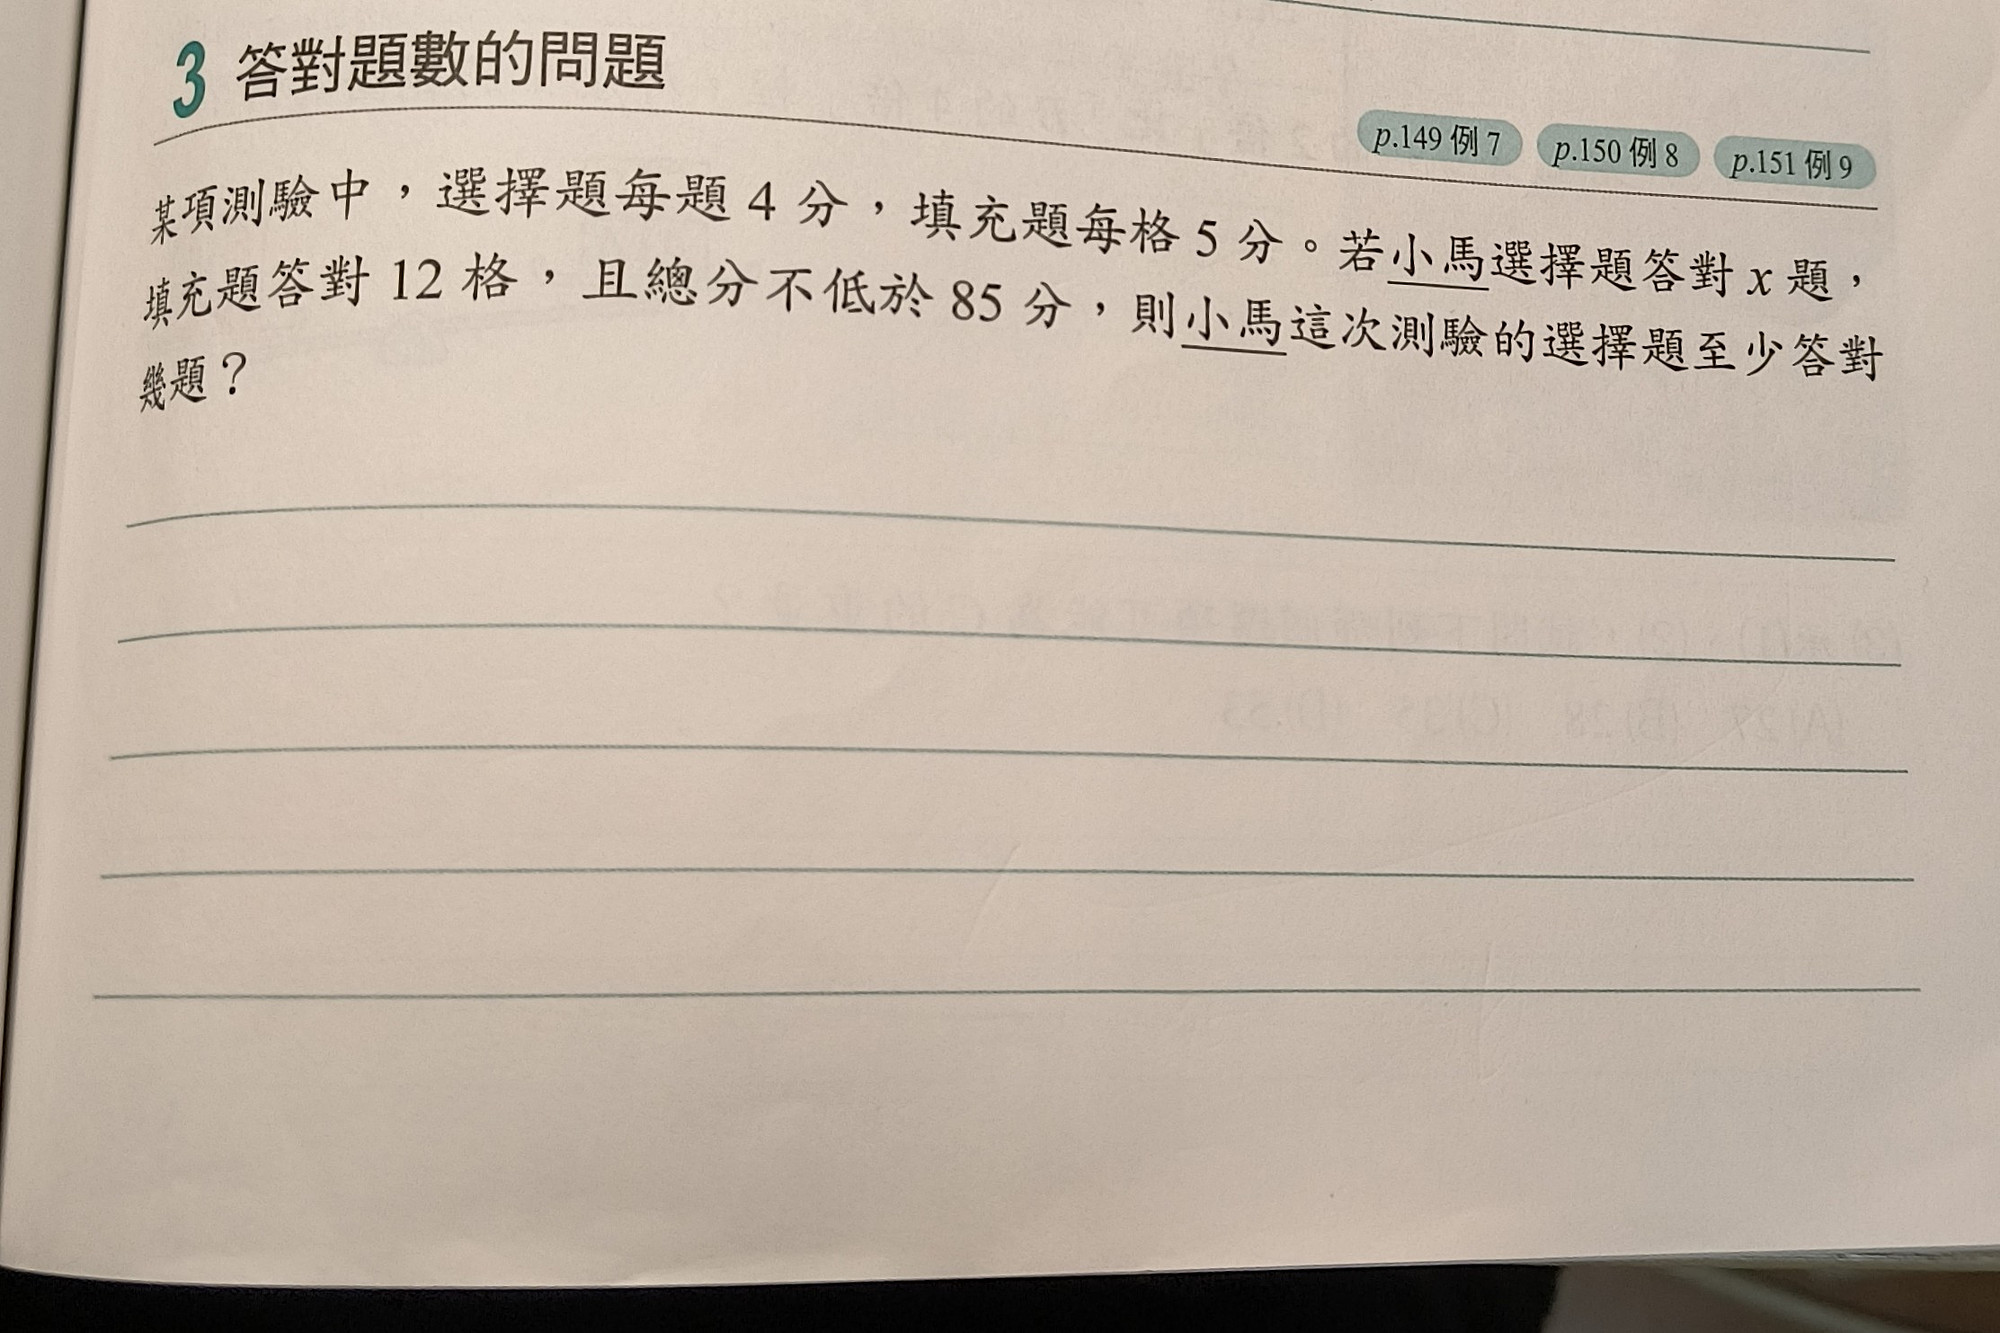 3 答對題數的問題
p.149 例 7 p.150 例 8 p.151 例 9
某項測驗中，選擇題每題 4 分，填充題每格 5 分。若小馬選擇題答對 x 題，
填充題答對 12 格，且總分不低於 85 分，則小馬這次測驗的選擇題至少答對
幾題？